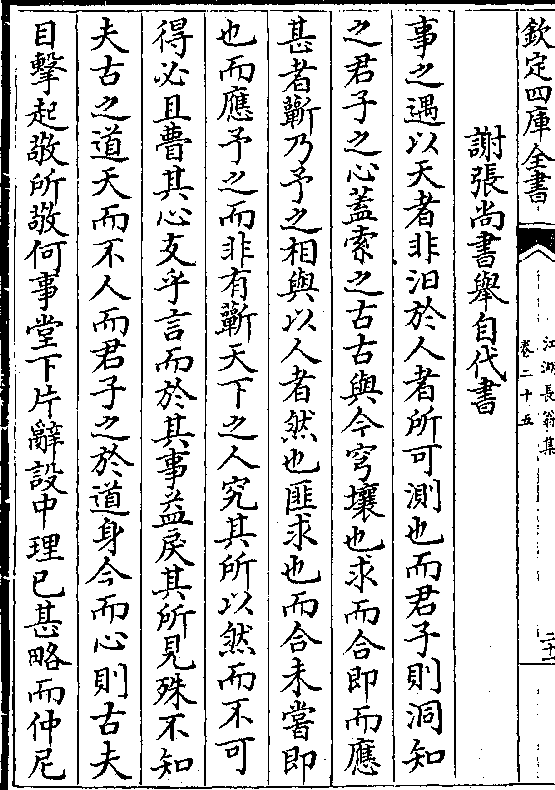 欽定四庫全書
江湖長翁集
卷二十五
二十二
謝張尚書舉自代書
事之遇以天者非汩於人者所可測也而君子則洞知
之君子之心蓋索之古古與今穹壤也求而合即而應
甚者蘄乃予之相與以人者然也匪求也而合未嘗即
也而應予之而非有蘄天下之人究其所以然而不可
得必且瞢其心支乎言而於其事益戾其所見殊不知
夫古之道天而不人而君子之於道身今而心則古夫
目擊起敬所敬何事堂下片辭設中理已甚略而仲尼